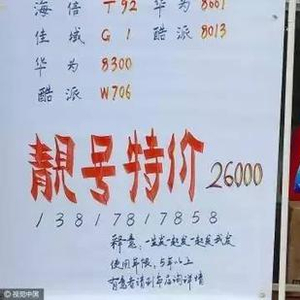 海信 T92 华为 8661
佳域 G1 酷派 8013
华为 8300
酷派 W706
靓号特价 26000
13817817858
释意:一生发一起发一起发我发
使用年限:5年以上
有意者请到本店询详情
视觉中国